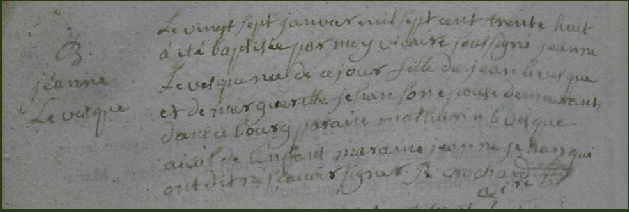 B.
jeanne
Levesque
Le vingt sept janvier mil sept cent trente huit
a été baptisée par moy vicaire soussigné jeanne
Levesque née de ce jour fille de jean levesque
et de margueritte jehan son epouse demeurant
dans ce bourg parain mathurin levesque
aieul de lenfant maraine jeanne jehan qui
ont dit ne scavoir signer R. Rochard